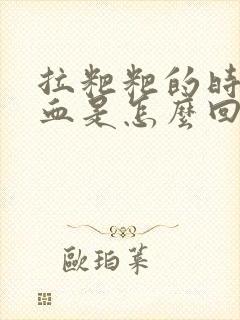 拉粑粑的時
血是怎麼回
歐珀萊